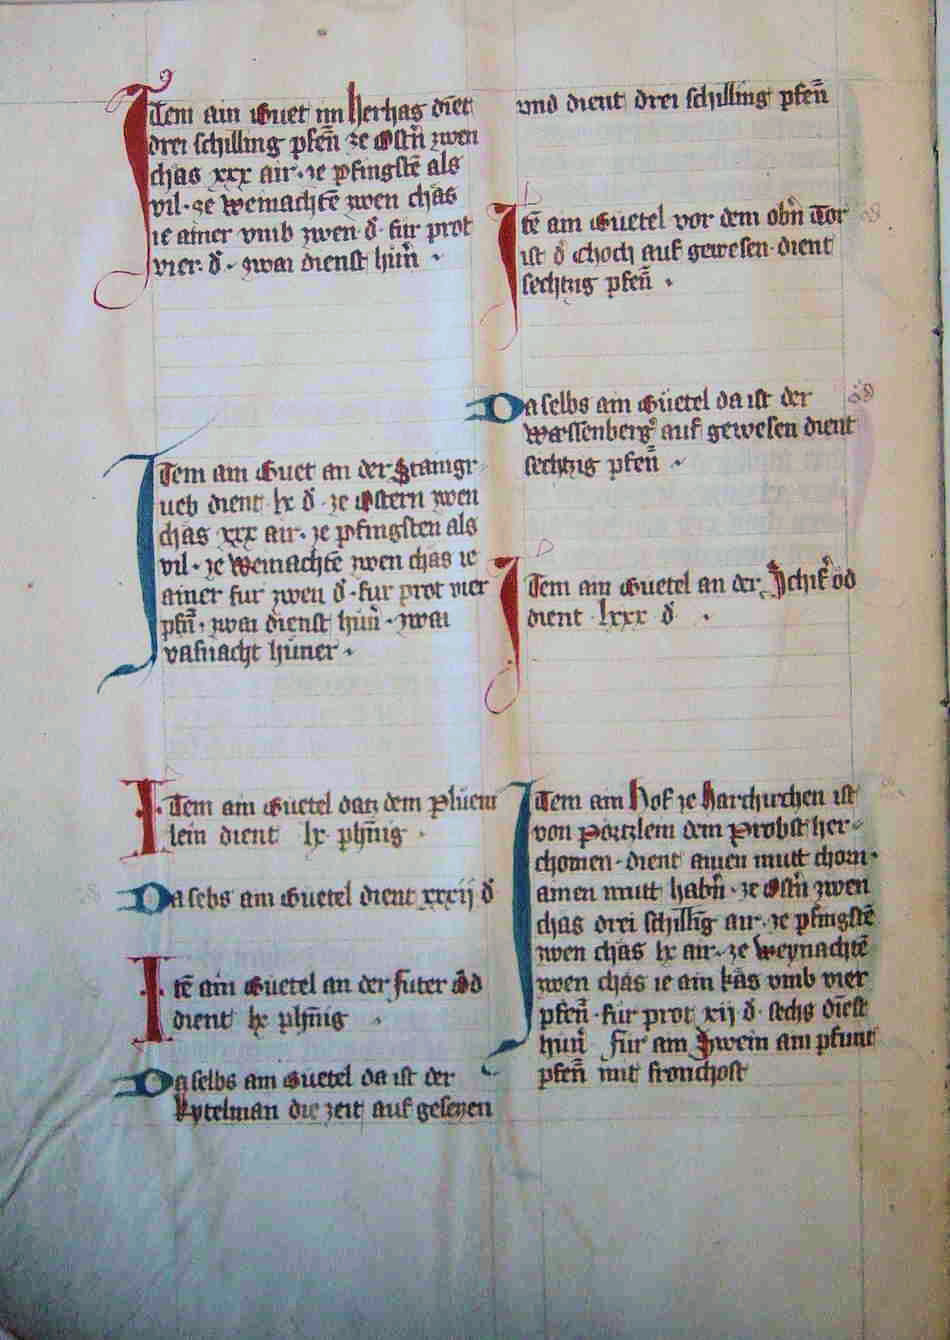 Item ain Guet im Herhag diēt
drei schilling pfēn ze Ostn̄ zwen
chäs xxx air · ze pfingstē als
vil · ze weinachtē zwen chäs
ie ainer vmb zwen d̄ · für prot
vier d̄ · zwai dienst hün̄ ·
Item ain Guet an der Staingr
ueb dient lx d̄ · ze Ostern zwen
chäs xxx air · ze pfingsten als
vil · ze weinachtē zwen chäs ie
ainer fur zwen d̄ · fur prot vier
pfn̄ · zwai dienst hün̄ · zwai
vasnacht hüner ·
Item ain Guetel datz dem Plüem
lein dient lx phn̄ig ·
Dasebs ain Guetel dient xxxij d̄
Itē ain Guetel an der futer Öd
dient lx phn̄ig ·
Daselbs ain Guetel da ist der
Kytelman die zeit auf gesezen
vnd dient drei schilling pfen̄
Itē ain Guetel vor dem obn̄ Tor
ist d̄ choch auf gewesen · dient
sechtzig pfen̄ ·
Daselbs ain Güetel da ist der
Wässenberḡ auf gewesen dient
sechtzig pfen̄ ·
Item ain Guetel an der Schik̄ öd
dient lxxx d̄ ·
Item ain Hof ze Harchirchen ist
von Pötzlein dem Probst her
chomen · dient ainen mutt chorn ·
ainen mutt habn̄ · ze Ostn̄ zwen
chäs drei schillīg air · ze pfingstē
zwen chäs lx air · ze Weynachtē
zwen chäs ie ain käs vmb vier
pfen̄ · für prot xij d̄ · sechs diēst
hün̄ für ain Swein ain pfunt
pfen̄ mit fronchost